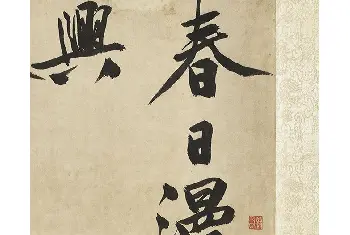 春日漫
興